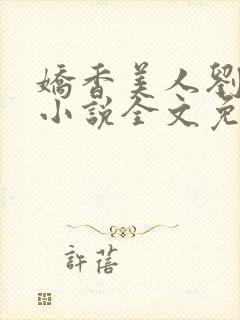 嬌香美人劉
小說全文免
許蓓